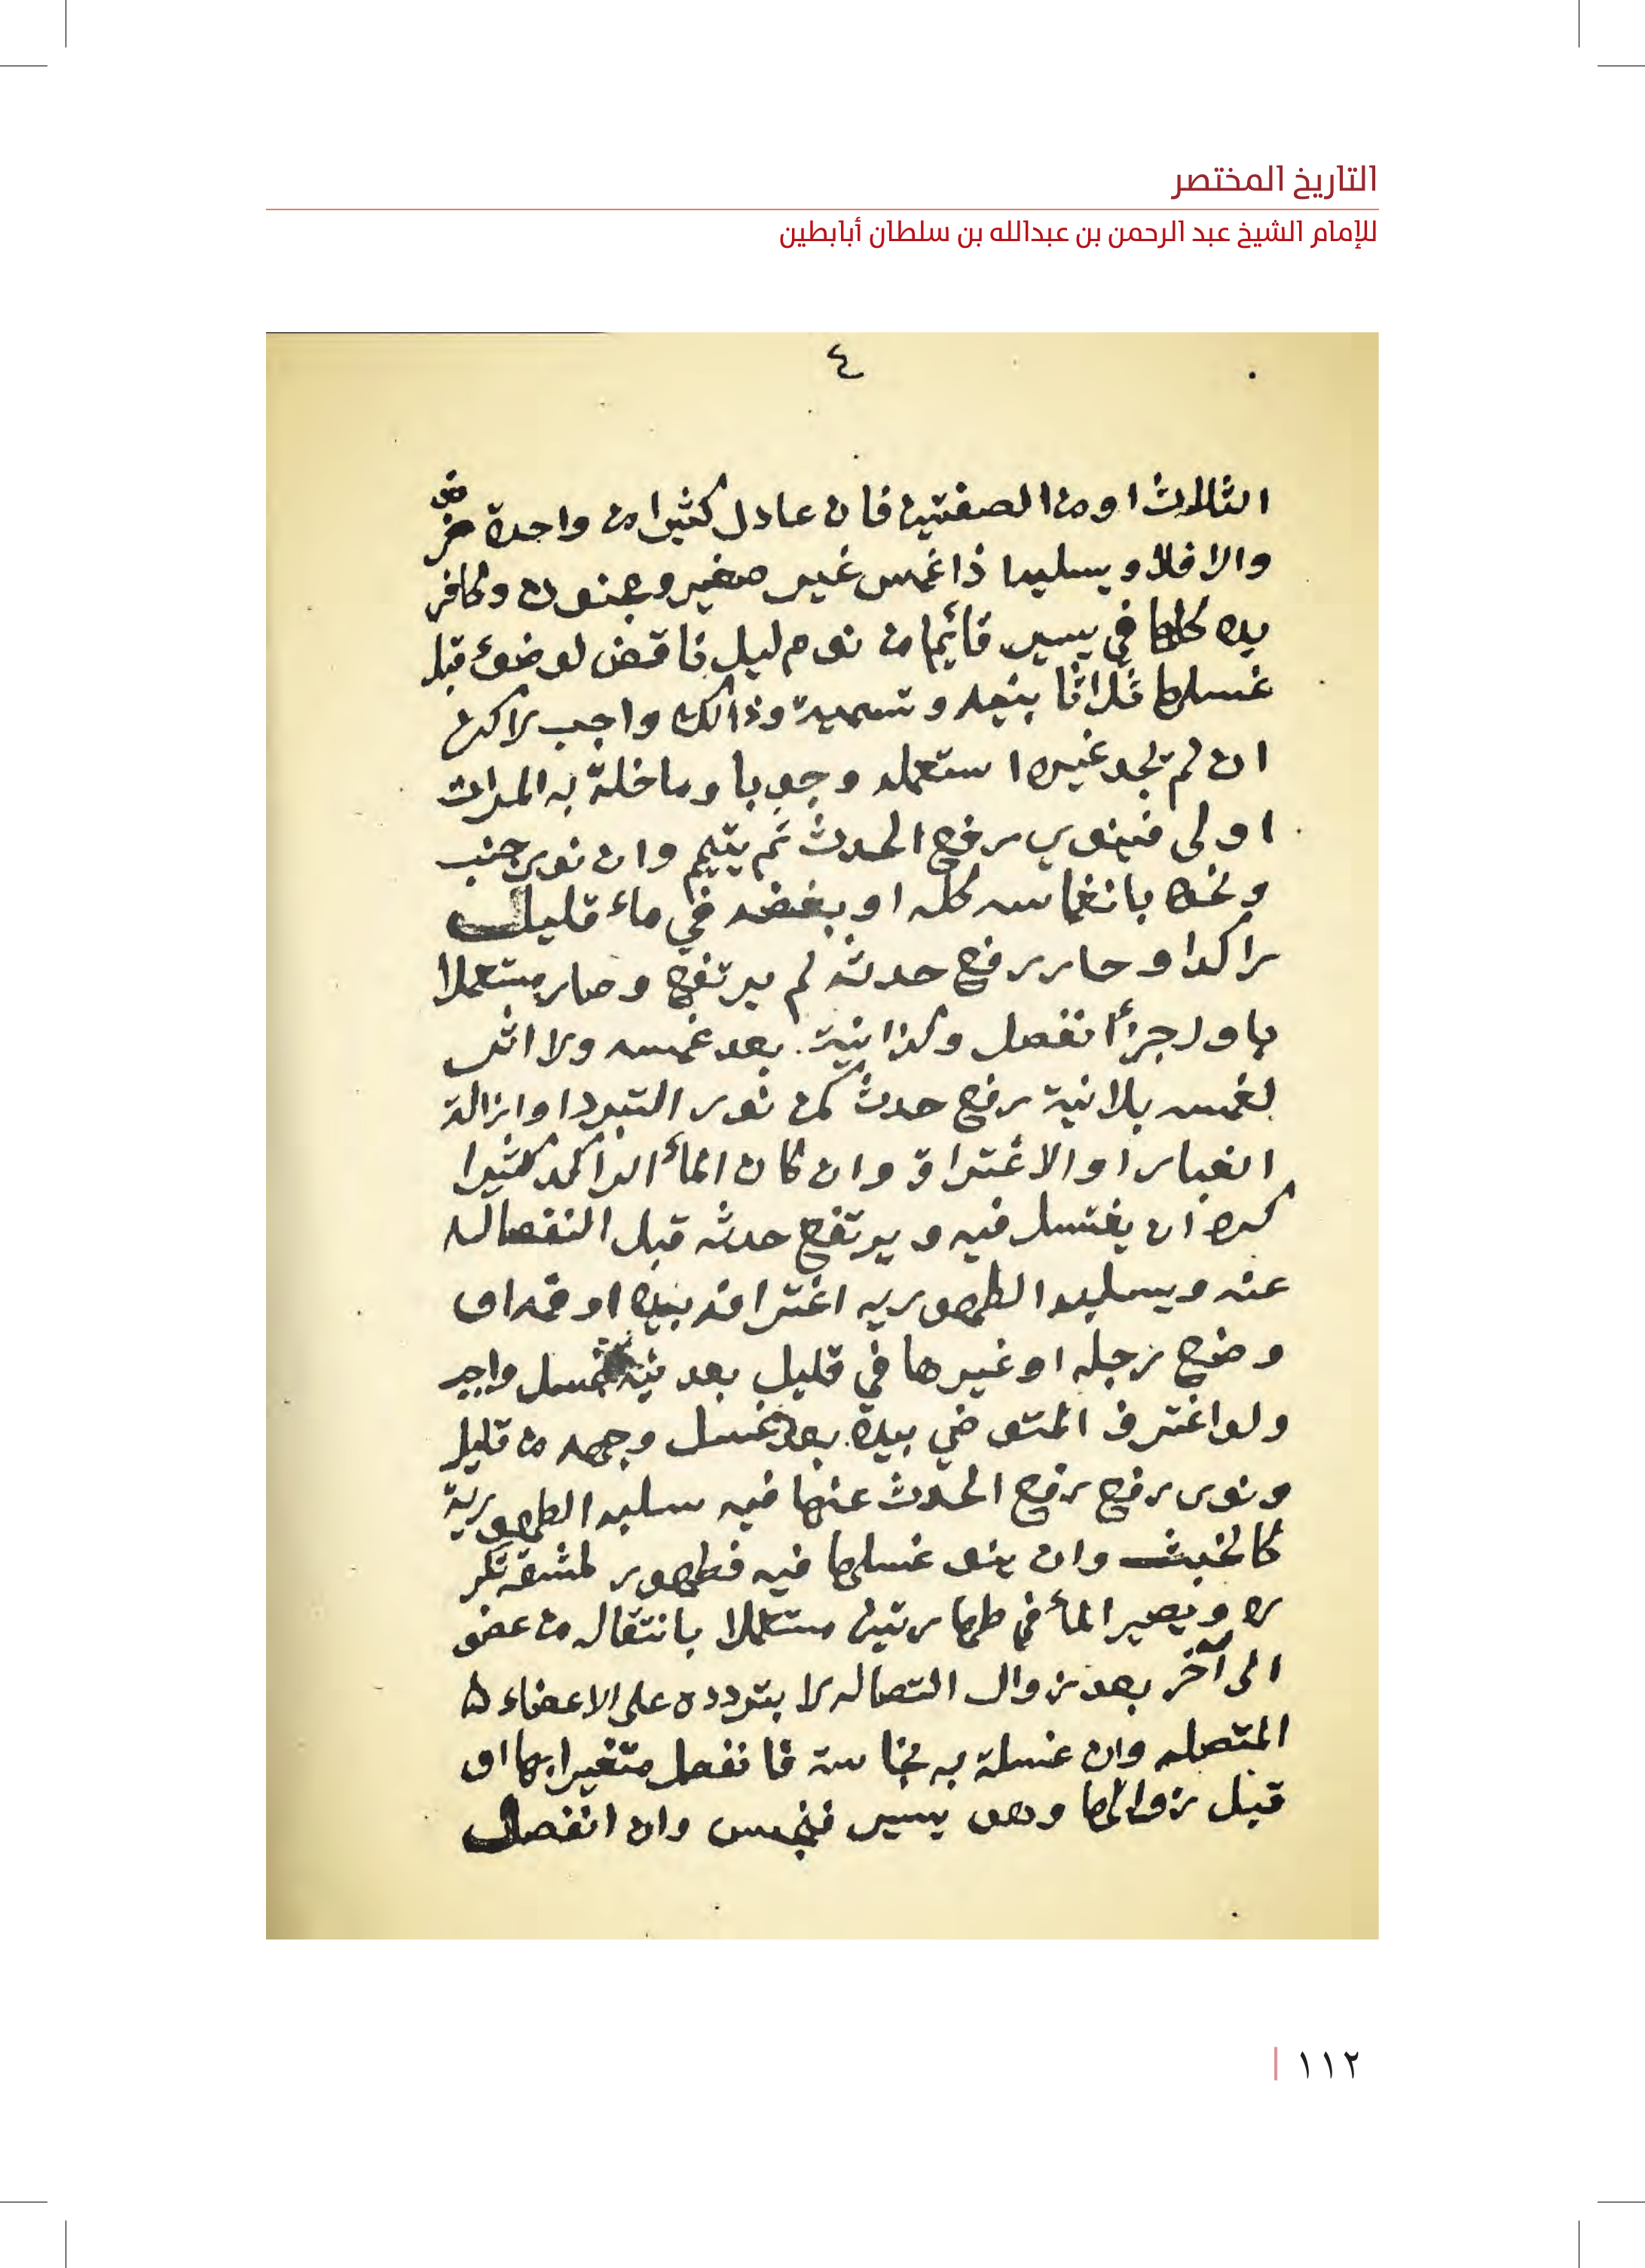 التاريخ المختصر
للإمام الشيخ عبد الرحمن بن عبدالله بن سلطان أبابطين
٤
الثلاث او من الصفتين فان عادل كثيرا من واحدة ضر
والا فلا ويسلبها ذا غمس غير صغير ومجنون وكافر
يده كلها في يسير قائما من نوم ليل ناقض لوضوء قبل
غسلها ثلاثا بنيه وتسمية وذالك واجب لاكن
ان لم يجد غيره استعمله وجوبا وما خلة به المرات
اولى فينوي رفع الحدث ثم يتيم وان نوى جنب
ونحوه بانغماسه كله او بعضه في ماء قليل
راكدا وجار رفع حدثه لم يرتفع وصار مستعملا
باول جزأ انفصل وكذا نية بعد غمسه ولا اثر
لغمسه بلا نية رفع حدث كمن نوى التبرد او ازالة
الغبار او الاغتراف وان كان المأ الراكد كثيرا
كره ان يغتسل فيه ويرتفع حدثه قبل النفصاله
عنه ويسلبه الطهوريه اغترافه بيده او فمه او
وضع رجله او غيرها في قليل بعد نية غسل واجب
ولو اغترف المتوضي بيده بعد غسل وجهه من قليل
ونوى رفع رفع الحدث عنها فيه سلبه الطهورية
كالجنب وان لم ينو غسلها فيه فطهور لمشقة تكر
ره ويصير المأ في طهارتين مستعملا بانتقاله من عضو
الى آخر بعد زوال التصاله لا بتردده على الاعضاء
المتصله وان غسلة به نجاسة فانفصل متغيرا بها او
قبل زوالها وهو يسير فنجس وان انفصل
١١٢